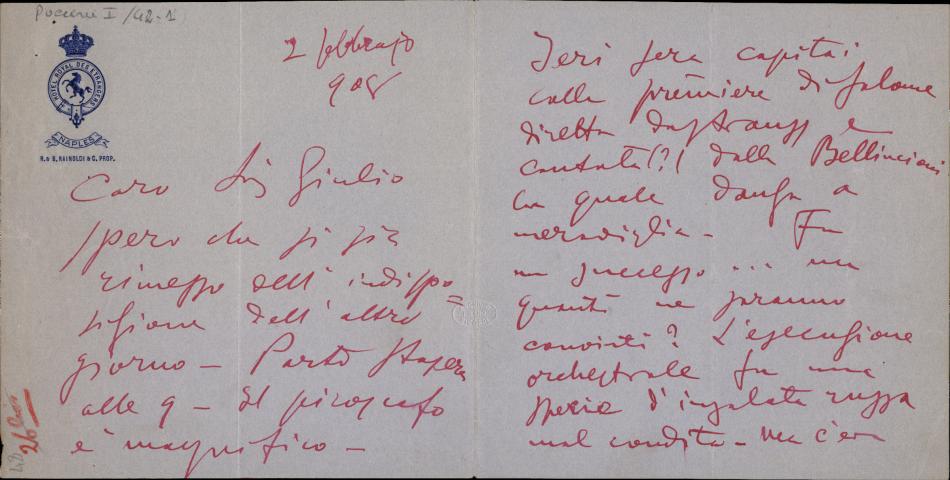 Puccini I / 42-1
HOTEL ROYAL DES ETRANGERS
NAPLES
R. & B. MAINOLDI & C. PROP.
2 febbrajo
908
Caro Sig Giulio
spero che si sia
rimesso dell' indispo=
sizione dell' altro
giorno - Parto stasera
alle 9 - Il piroscafo
è magnifico -
26
Ieri sera capitai
alla première di Salome
diretta da Strauss e
cantata (?) dalla Bellincioni
la quale danza a
meraviglia - Fu
un successo ... ma
quanti ne saranno
convinti? L'esecuzione
orchestrale fu una
specie d'insalata russa
mal condita - ma c'era